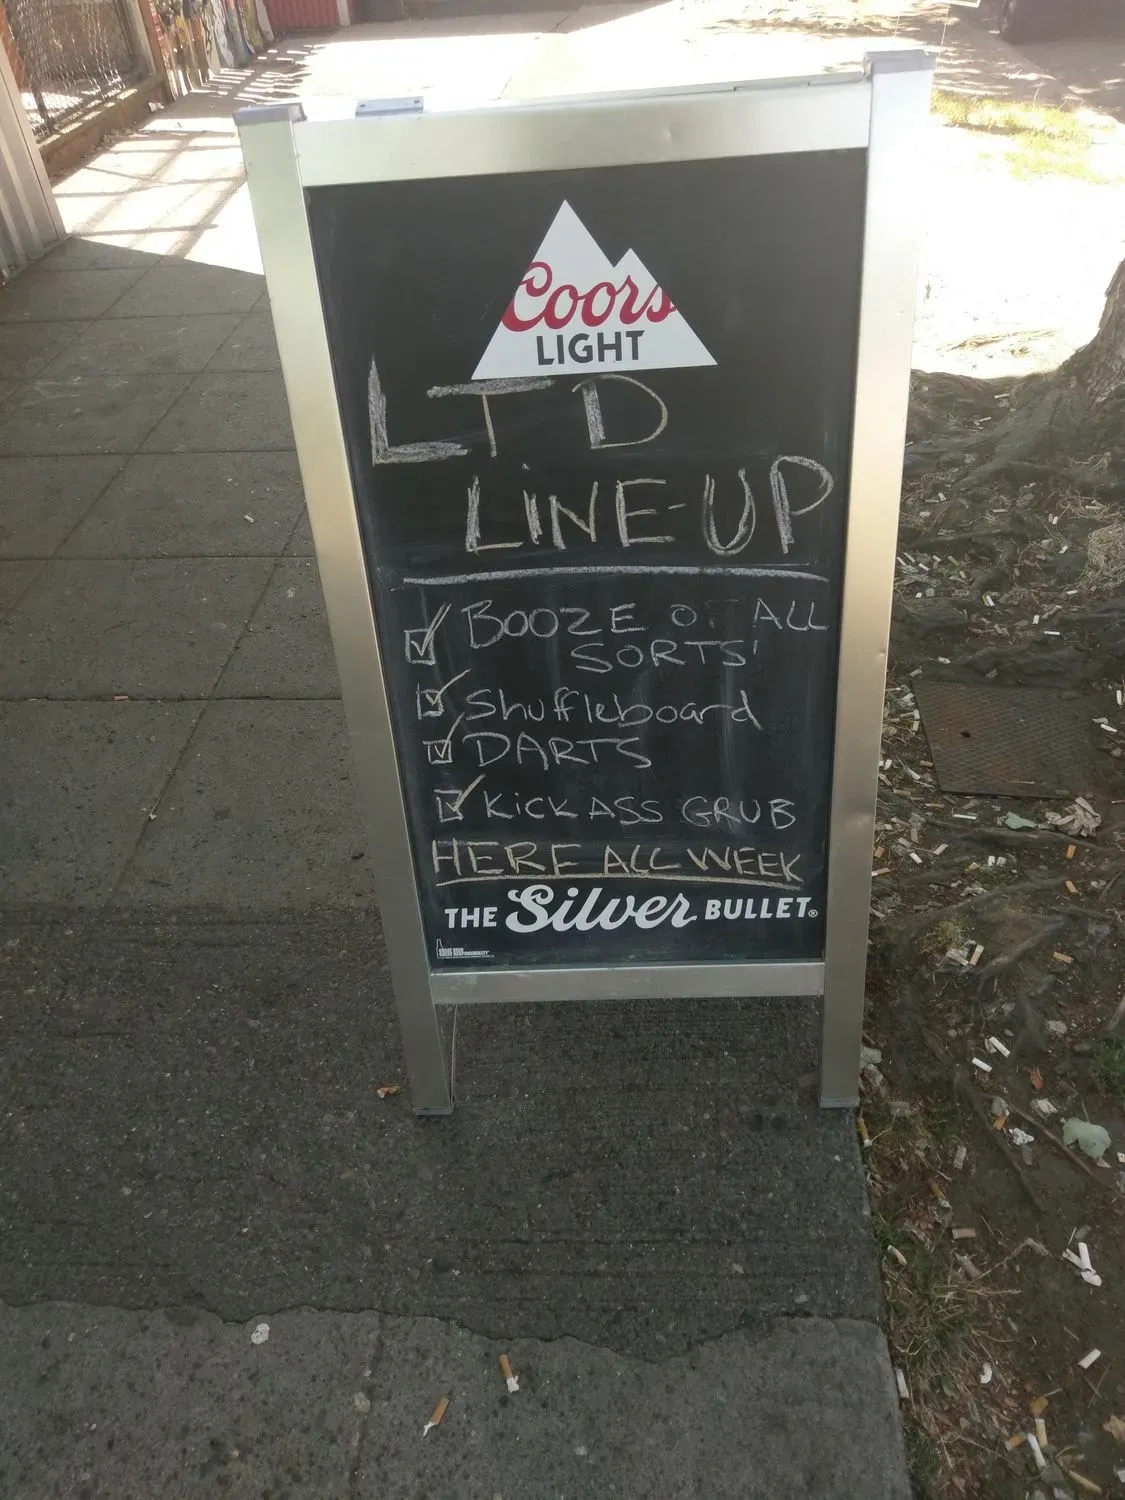 Coors
LIGHT
LTD
LINE-UP
BOOZE OF ALL
SORTS'
Shuffleboard
DARTS
KICK ASS GRUB
HERE ALL WEEK
THE Silver BULLET®